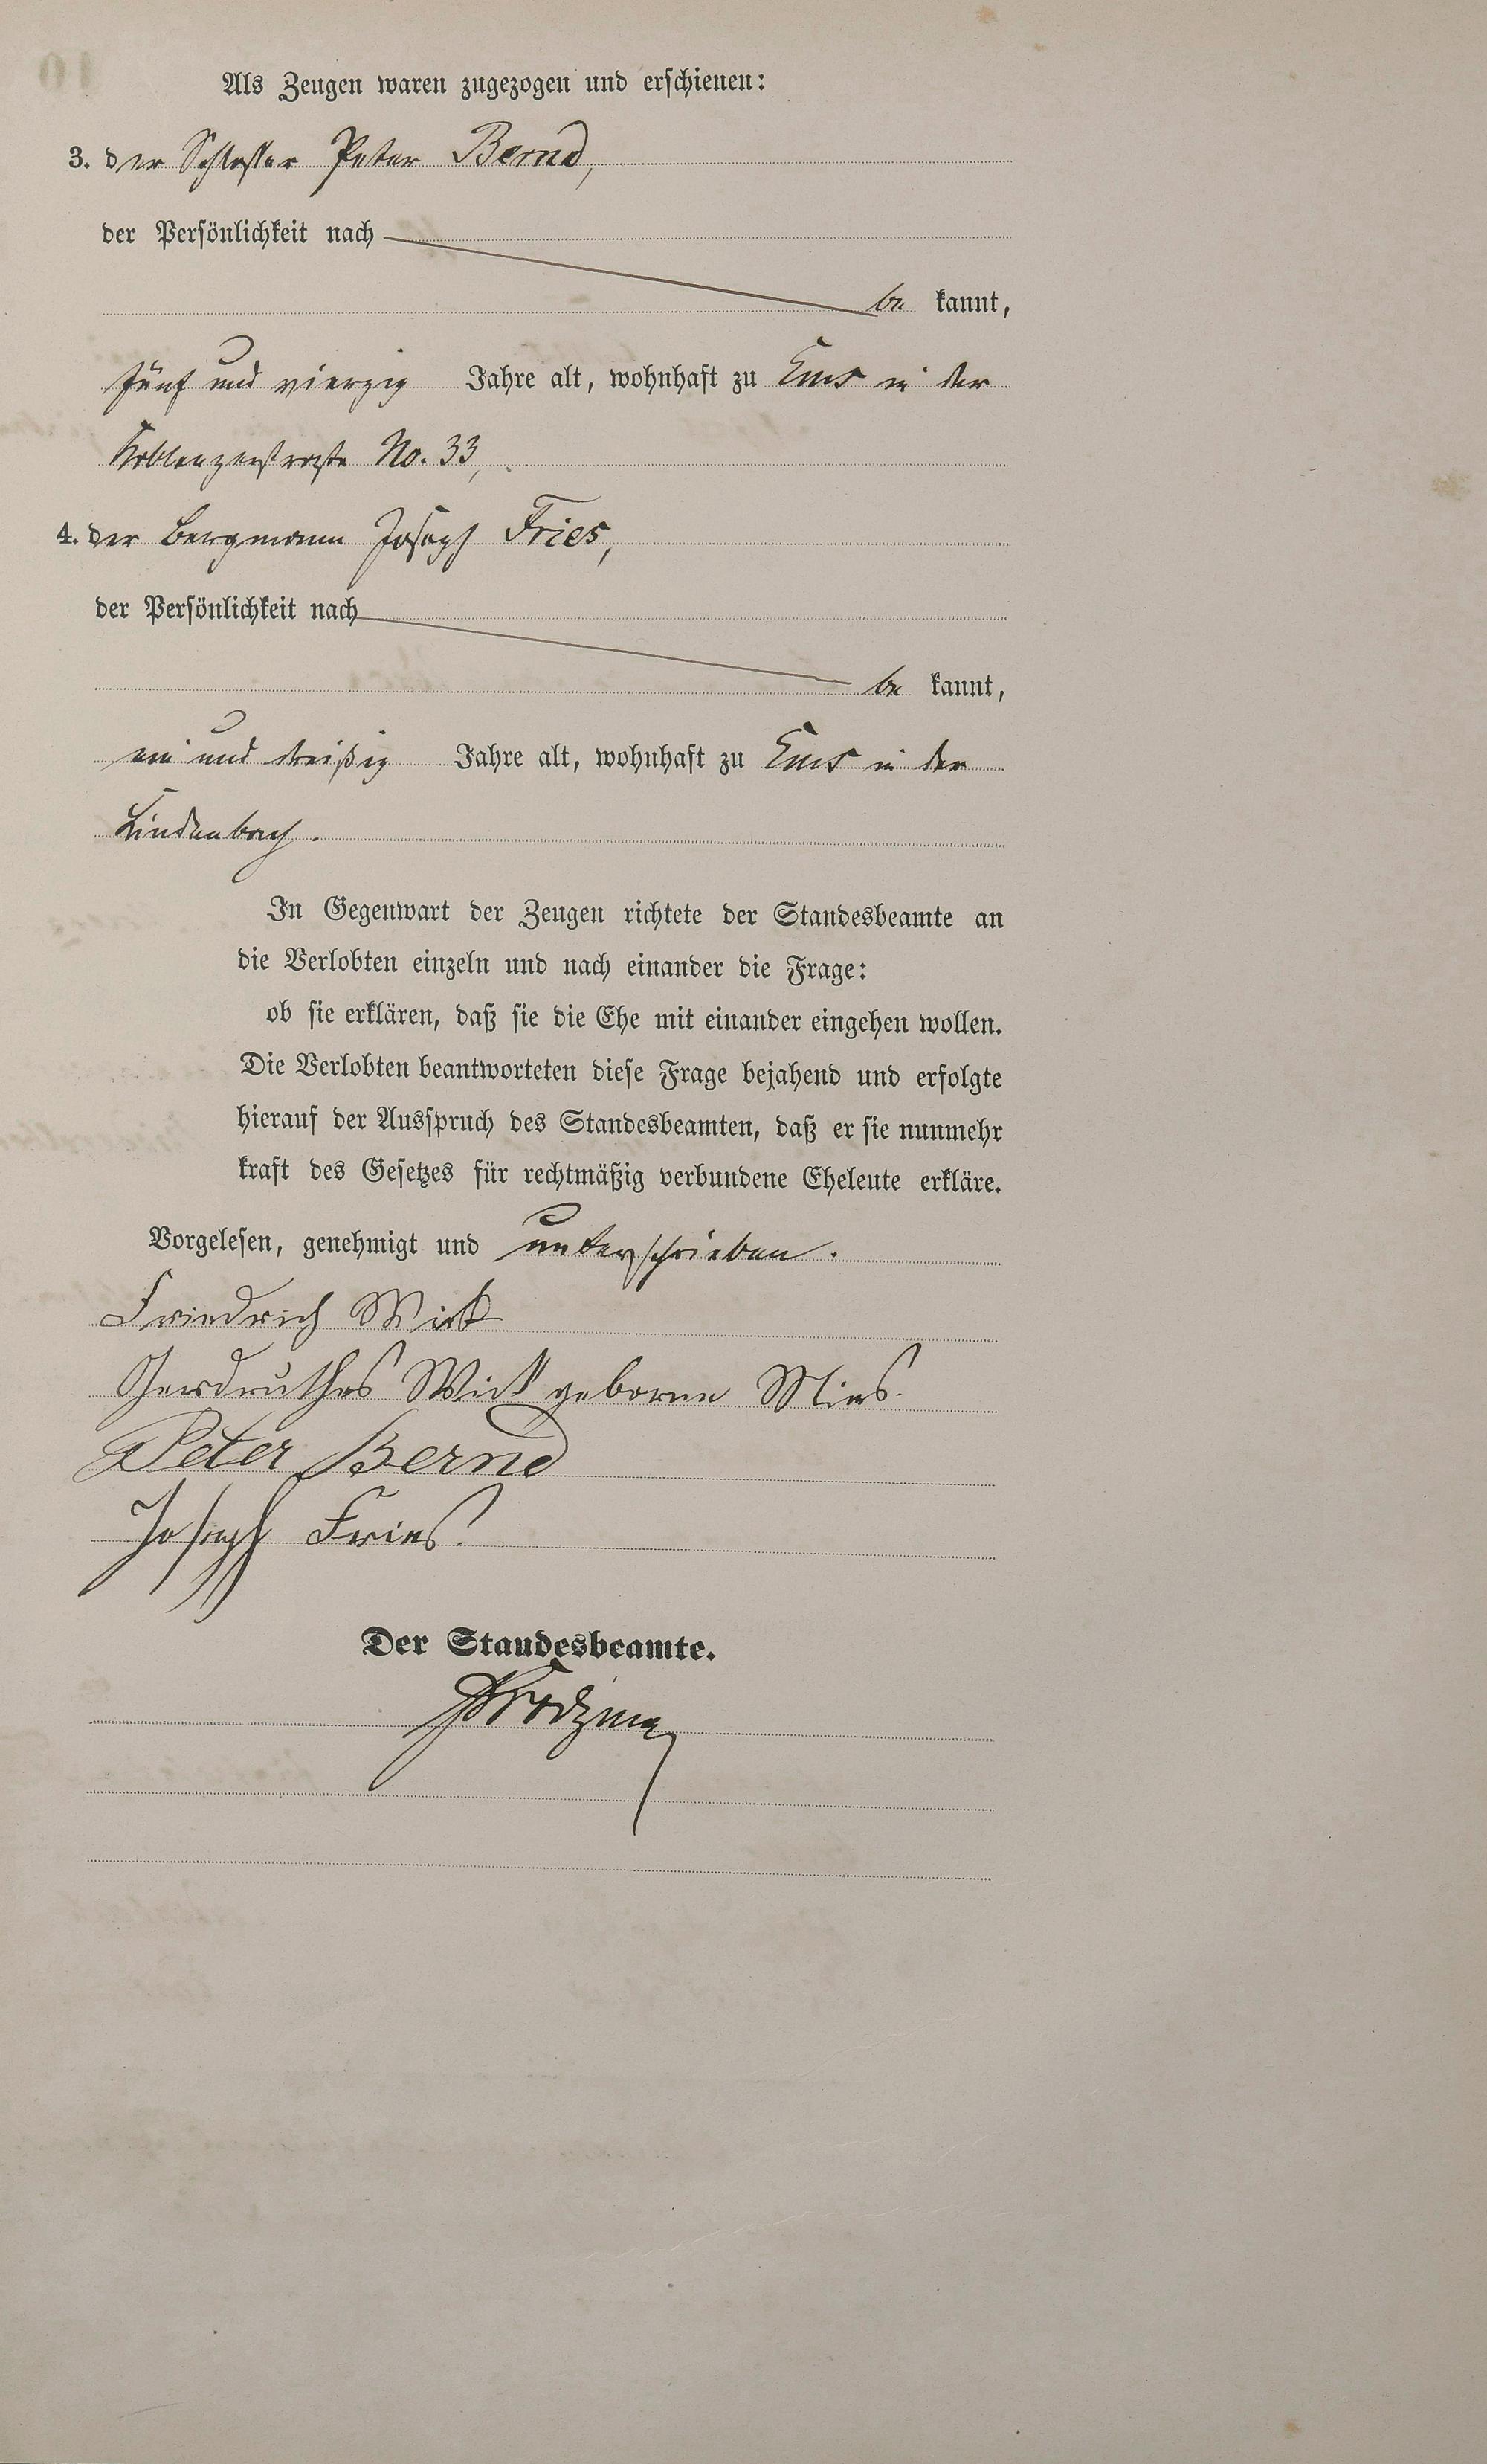 Als Zeugen waren zugezogen und erschienen:
3. der Schlosser Peter Bernd,
der Persönlichkeit nach
be kannt,
fünf und vierzig Jahre alt, wohnhaft zu Ems in der
Koblenzerstraße No. 33,
4. der Bergmann Joseph Fries,
der Persönlichkeit nach
be kannt,
ein und dreißig Jahre alt, wohnhaft zu Ems in der
Lindenbach.
In Gegenwart der Zeugen richtete der Standesbeamte an
die Verlobten einzeln und nach einander die Frage:
ob sie erklären, daß sie die Ehe mit einander eingehen wollen.
Die Verlobten beantworteten diese Frage bejahend und erfolgte
hierauf der Ausspruch des Standesbeamten, daß er sie nunmehr
kraft des Gesetzes für rechtmäßig verbundene Eheleute erkläre.
Vorgelesen, genehmigt und unterschrieben.
Friedrich Wick
Wick geborne Mies.
Peter Bernd
Joseph Fries.
Der Standesbeamte.